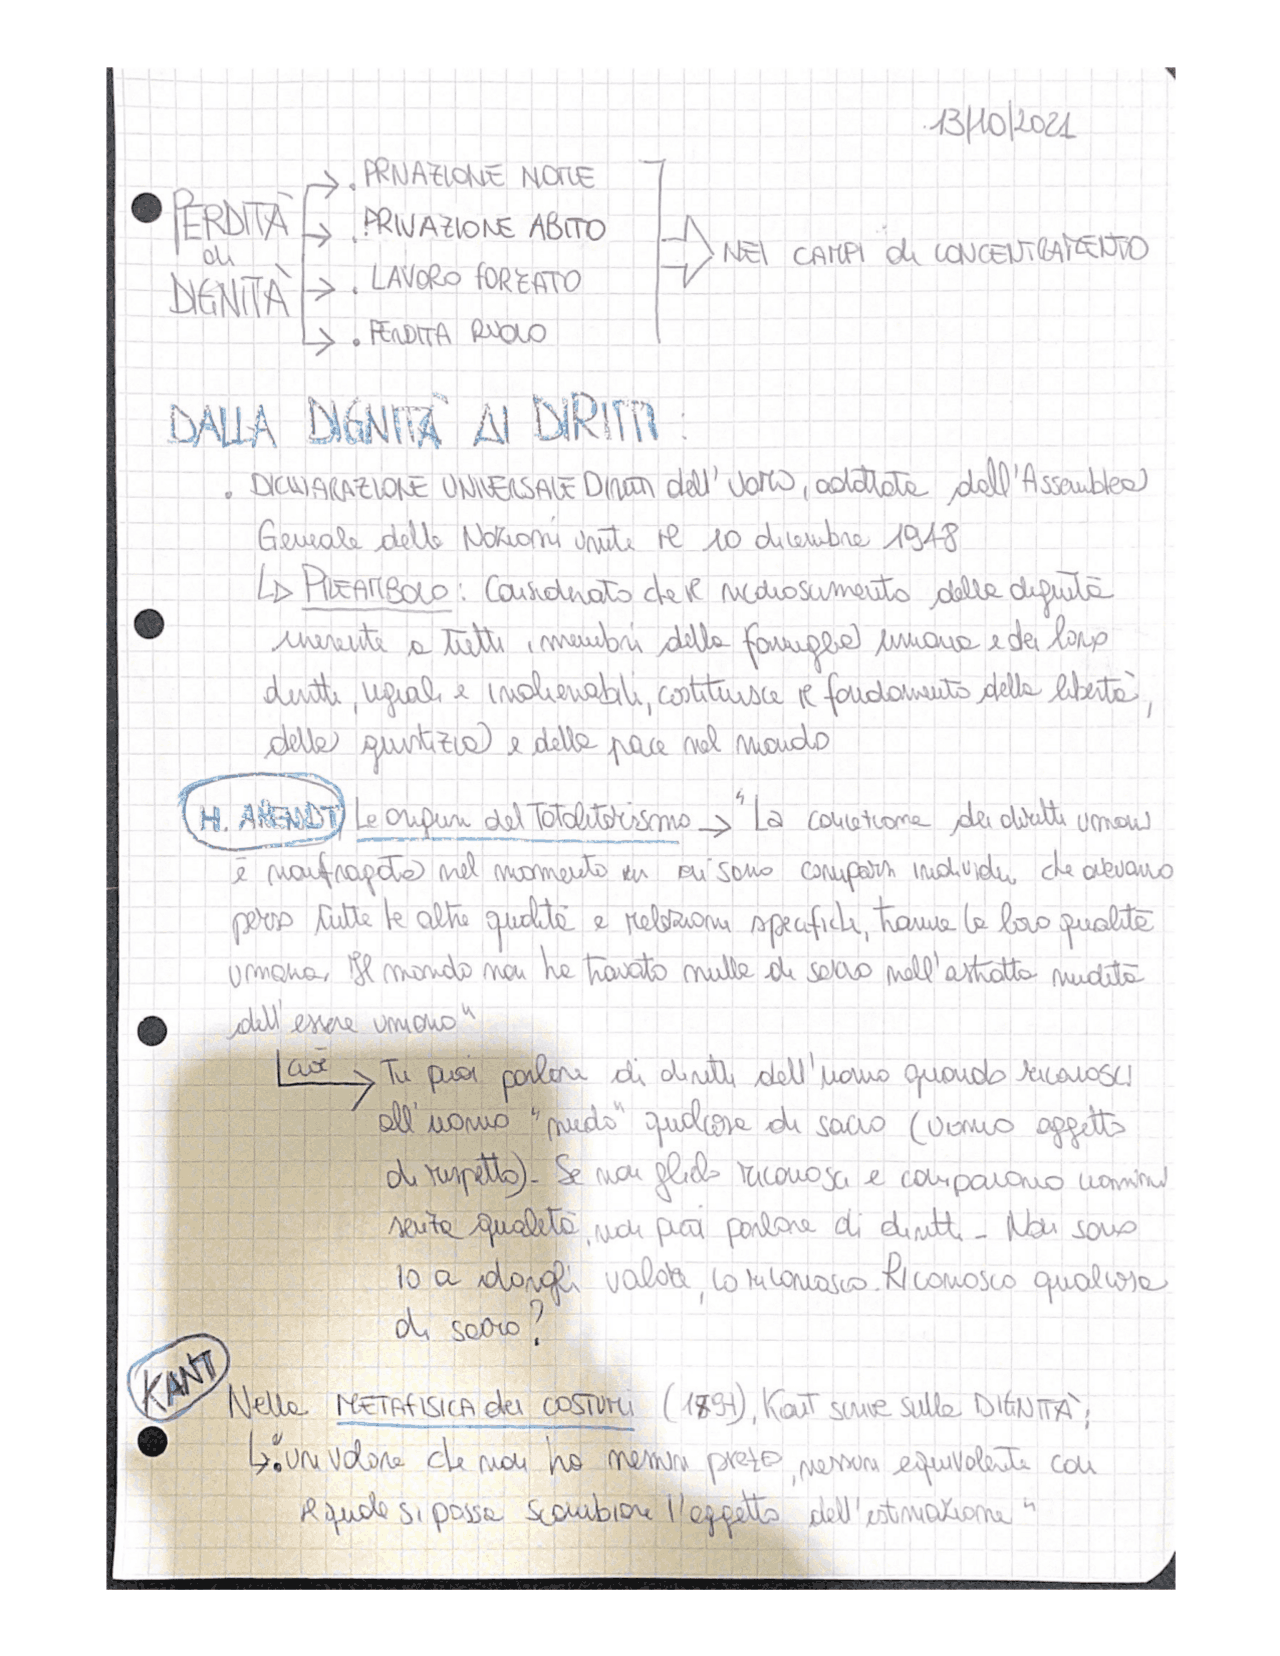 13/10/2021
PERDITÀ di DIGNITÀ
. PRIVAZIONE NOME
. PRIVAZIONE ABITO
. LAVORO FORZATO
. PERDITA RUOLO
NEI CAMPI di CONCENTRAMENTO
DALLA DIGNITÀ AI DIRITTI :
. DICHIARAZIONE UNIVERSALE Diritti dell'Uomo, adottata dall'Assemblea
Generale delle Nazioni unite il 10 dicembre 1948
PREAMBOLO : Considerato che il riconoscimento della dignità
inerente a tutti i membri della famiglia umana e dei loro
diritti, uguali e inalienabili, costituisce il fondamento della libertà,
della giustizia e della pace nel mondo
H. ARENDT Le origini del Totalitarismo → "La concezione dei diritti umani
è naufragata nel momento in cui sono comparsi individui che avevano
perso tutte le altre qualità e relazioni specifiche, tranne la loro qualità
umana. Il mondo non ha trovato nulla di sacro nell'astratta nudità
dell'essere umano"
cioè → Tu puoi parlare di diritti dell'uomo quando riconosci
all'uomo "nudo" qualcosa di sacro (uomo oggetto
di rispetto). Se non glielo riconosci e compaiono uomini
senza qualità, non puoi parlare di diritti. Non sono
io a dargli valore, lo riconosco. Riconosco qualcosa
di sacro?
KANT
Nella METAFISICA dei COSTUMI (1797), Kant scrive sulla DIGNITÀ:
"un valore che non ha nessun prezzo, nessun equivalente con
il quale si possa scambiare l'oggetto dell'estimazione"